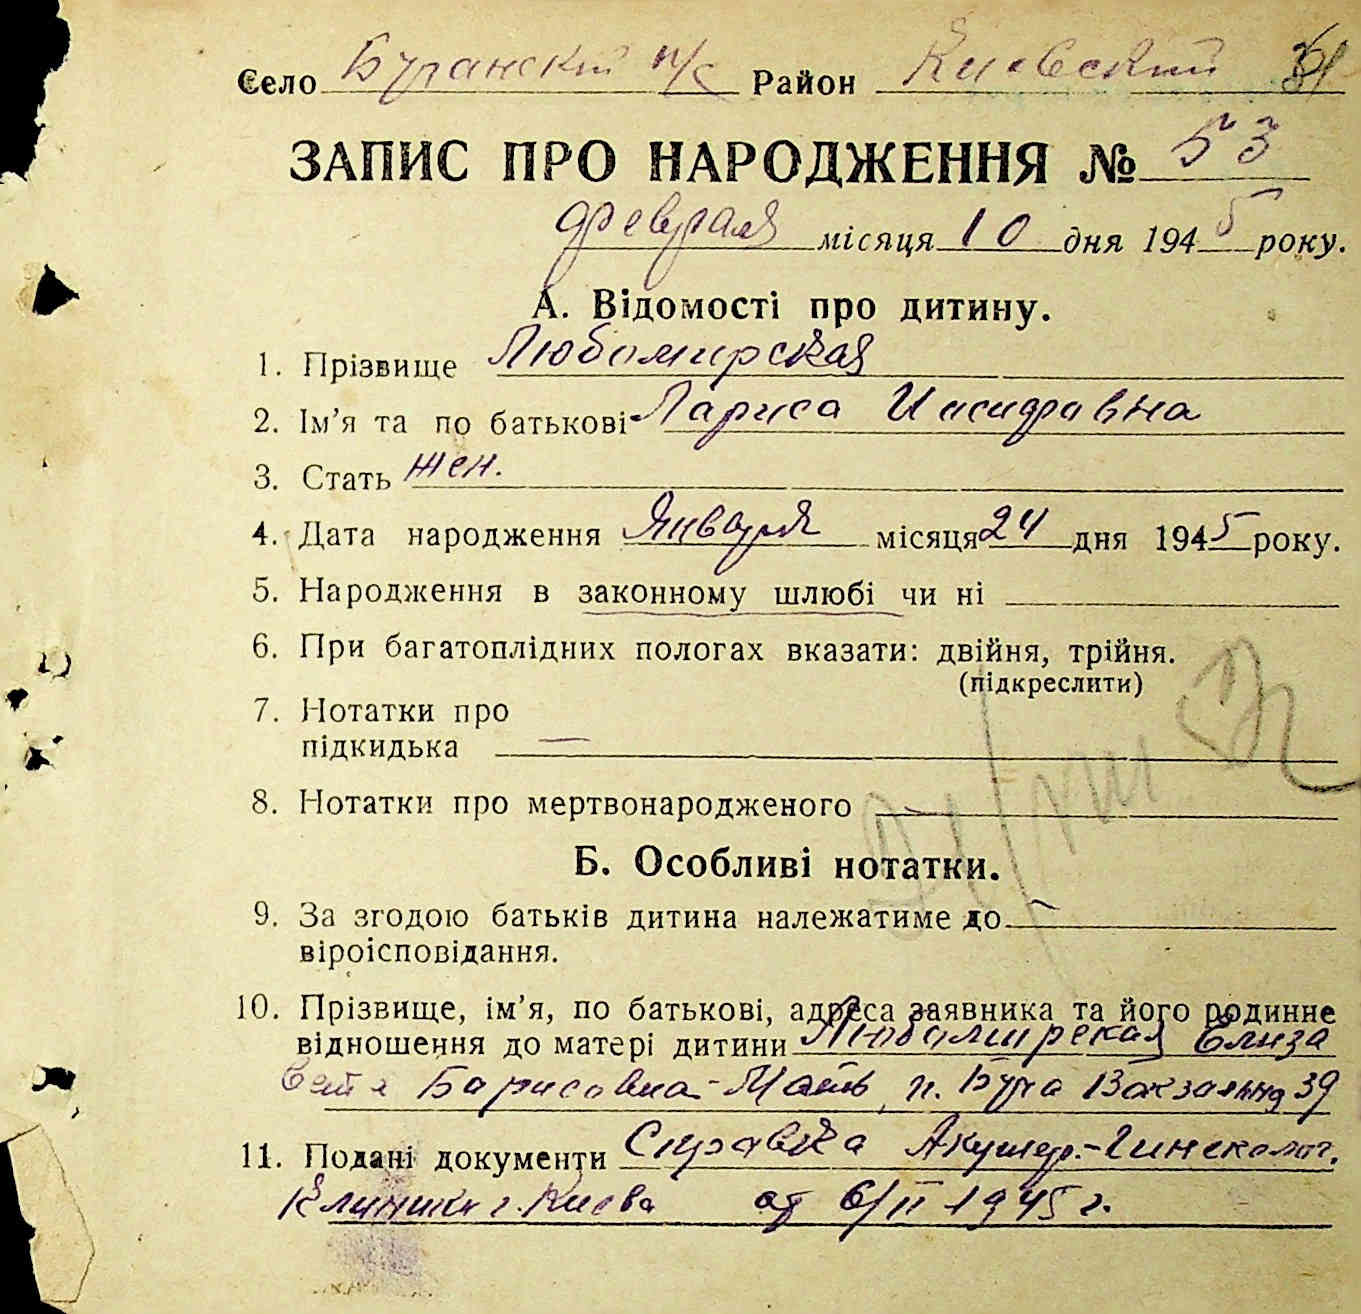 Село Бучанский п/с Район Киевский 31
ЗАПИС ПРО НАРОДЖЕННЯ № 53
февраля місяця 10 дня 1945 року.
А. Відомості про дитину.
1. Прізвище Любомирская
2. Ім’я та по батькові Лариса Иасифавна
3. Стать жен.
4. Дата народження Января місяця 24 дня 1945 року.
5. Народження в законному шлюбі чи ні
6. При багатоплідних пологах вказати: двійня, трійня.
(підкреслити)
7. Нотатки про
підкидька —
8. Нотатки про мертвонародженого
Б. Особливі нотатки.
9. За згодою батьків дитина належатиме до
віроісповідання.
10. Прізвище, ім’я, по батькові, адреса заявника та його родинне
відношення до матері дитини Любамирская Елиза
Барисовна - Мать, п. Буча Вокзальна 39
11. Подані документи Справка Акушер.-Гинеколог.
Клиники г. Киева от 6/II 1945 г.